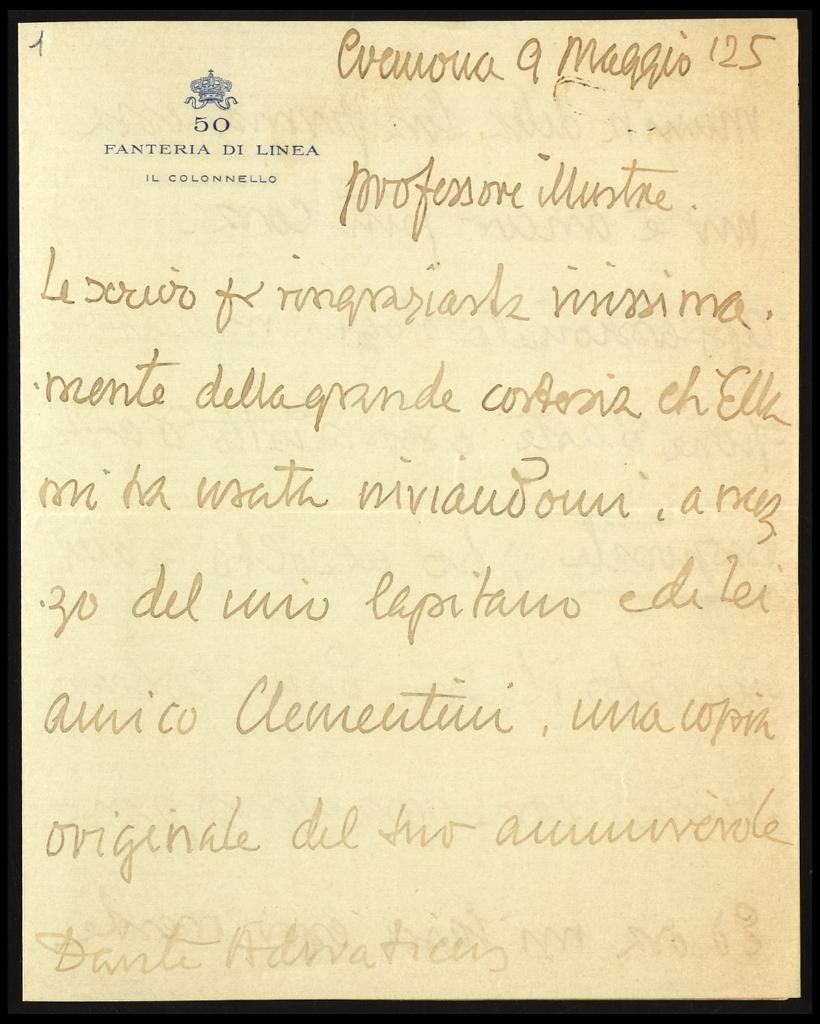 1
Cremona 9 Maggio '25
50
FANTERIA DI LINEA
IL COLONNELLO
Professore illustre.
Le scrivo per ringraziarla vivissima.
.mente della grande cortesia ch'Ella
mi ha usata inviandomi, a mez
.zo del mio Capitano e di Lei
amico Clementini, una copia
originale del suo ammirevole
Dante Adriaticus